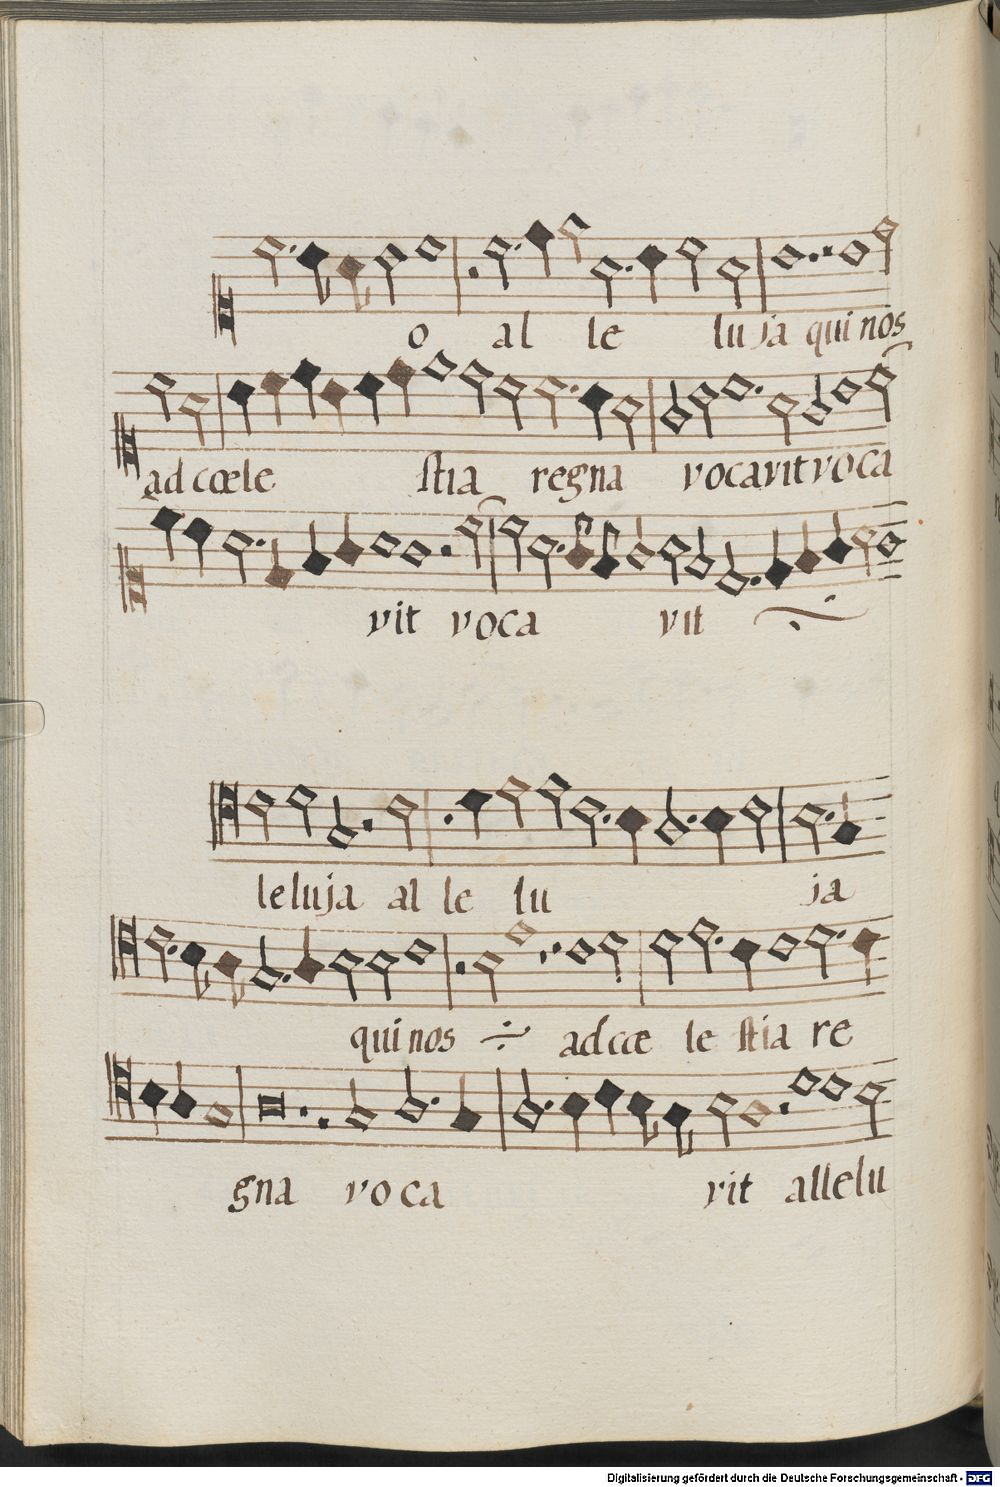 o al le luja qui nos
ad cœle stia regna vocavit voca
vit voca vit
leluja al le lu ja
qui nos ad cœ le stia re
gna voca vit allelu
Digitalisierung gefördert durch die Deutsche Forschungsgemeinschaft - DFG